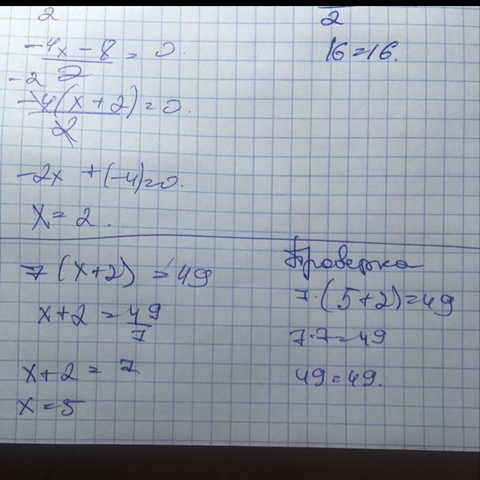 2
-4x - 8 / 2 = 0.
-2
-4(x + 2) / 2 = 0.
-2x + (-4) = 0.
X = 2.
7(x+2) = 49
x+2 = 49/7
x+2 = 7
x = 5
2
16 = 16.
Проверка
7·(5+2) = 49
7·7 = 49
49 = 49.